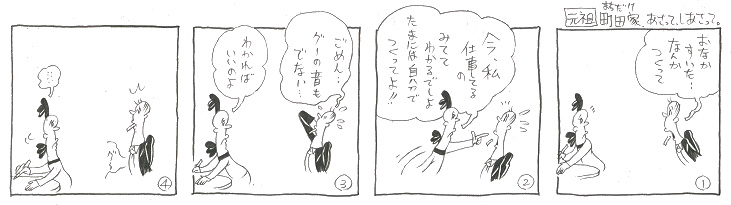 元祖 町田家、あさって、しあさって。
おなか
すいた…
なんか
つくって
①
今、私
仕事してる
の
みてて
わかるでしょ
たまには自分で
つくってよ!!
②
ごめん…
グーの音も
でない…
わかれば
いいのよ
③
グー
…
④